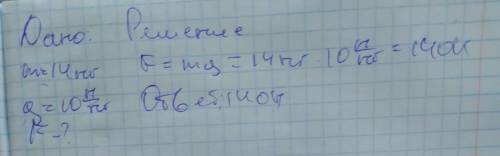 Дано. Решение
m=14кг F=mg=14кг·10 Н/кг=140Н
g=10 Н/кг Ответ:140Н
F-?